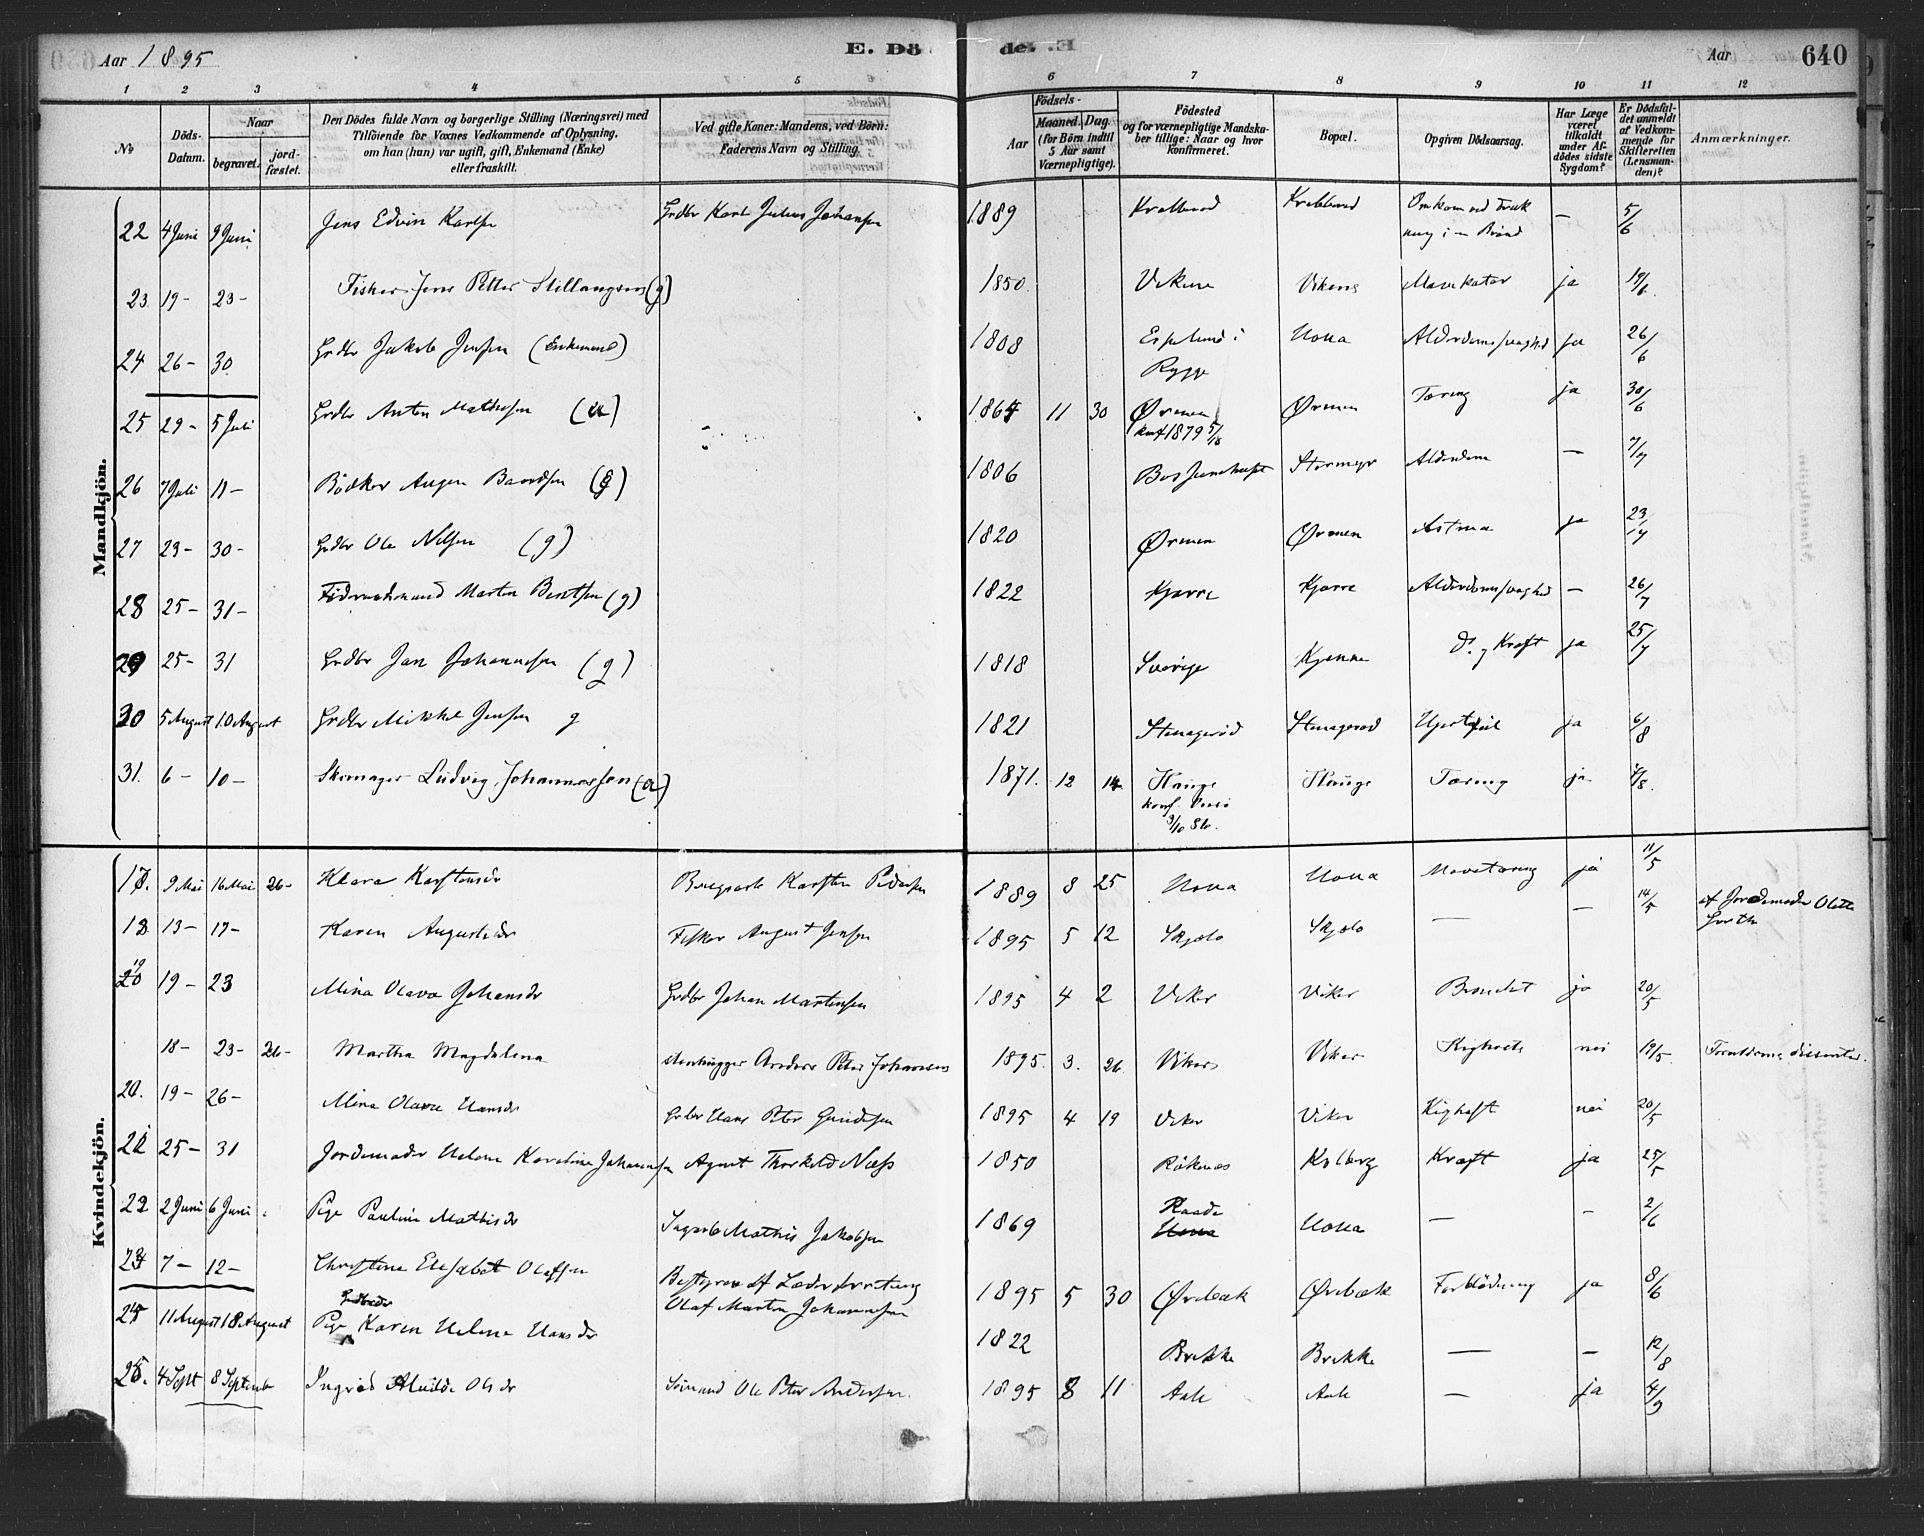 Aar 1895
E. Dö
de. .E
Aar
640
1 2 3 4 5 6 7 8 9 10 11 12
No
Döds-Datum.
Naar
begravet.
jord-fæstet.
Den Dödes fulde Navn og borgerlige Stilling (Næringsvei) med
Tilföiende for Voxnes Vedkommende af Oplysning,
om han (hun) var ugift, gift, Enkemand (Enke)
eller fraskilt.
Ved gifte Koner: Mandens, ved Börn:
Faderens Navn og Stilling.
Födsels-
Aar
Maaned. Dag.
(for Börn indtil
5 Aar samt
Værnepligtige).
Födested
og for værnepligtige Mandska-
ber tillige: Naar og hvor
konfirmeret.
Bopæl.
Opgiven Dödsaarsag.
Har Læge
været
tilkaldt
under Af-
dödes sidste
Sygdom?
Er Dödsfal-
det anmeldt
af Vedkom-
mende for
Skifteretten
(Lensman-
den)?
Anmærkninger.
Mandkjön.
22 4 Juni 9 Juni Jens Edvin Karlsen Grdbr Karl Julius Johansen 1889 Omkom ved Druk
ning i en Brønd — 5/6
23. 19 - 23 - Fisker Jens Petter (g) 1850 Vikene Vikene ja 19/6
24 26 - 30 Grdbr Jakob Jensen (Enkemand) 1808 Esplund i
Rygge Hona Alderdomssvaghed ja 26/6
25 29 - 5 Juli Grdbr Anton Mathesen (u) 1864 11 30 Ørmen
konf 1879 5/10 Ørmen Tæring ja 30/6
26 7 Juli 11 - Bödker (g) 1806 Stormyr Alderdom — 7/7
27 23 - 30 - Grdbr Ole Nilsen (g) 1820 Ørmen Ørmen Astma ja 23/7
28 25 - 31 - Martin Berntsen (g) 1822 Kjærre Kjærre Alderdomssvaghed — 26/7
29 25 - 31 Grdbr Jan Johannesen (g) 1818 Sverige Kjenne Kræft ja 25/7
30 5 August 10 August Grdbr Mikkel Jensen g 1821 Stenagerød Stenagerød Hjertefeil ja 6/8
31. 6 - 10 - Skomager Ludvig Johannessen (u) 1871. 12 14 Hauge
konf.
3/10 86. Hauge Tæring ja 7/8.
Kvindekjön.
17. 9 Mai 16 Mai 26 - Klara Karstensdr Karsten Pedersen 1889 8 25 Hona Hona Mavetæring ja 11/5
18 13 - 17 - Karen Augustsdr Fisker August Jensen 1895 5 12 Skjælø Skjælø — — 14/5 af Jordemoder Olette
Groth
19 19 - 23 Mina Olava Johansdr Grdbr Johan Martinsen 1895 4 2 Viker Viker Bronchit ja 20/5
18 - 23 - 26 - Martha Magdalena Stenhugger Anders Peter Johansen 1895. 3. 26 Viker Viker Kighoste nei 19/5. Forældrene dissenter.
20. 19 - 26 - Mina Olava Hansdr Grdbr Hans Peter Gundersen 1895 4 19 Viker Viker Kighost nei 20/5
21 25 - 31 Jordemoder Helene Karoline Johannesen Agent Thorkild Næss 1850 Röknes Kolberg Kræft ja 25/5
22 2 Juni 6 Juni Pige Pauline Mathisdr Mathis Jakobsen 1869 Raade
Hona Hona — - 2/6
23 7 - 12 - Christine Elisabet Olafsen Bestyrer af Læderforretning
Olaf Martin Johannesen 1895 5 30 Ørebæk Ørebæk Forblödning ja 8/6
24 11 August 18 August Pige Karen Helene Hansdr 1822 Brekke Brekke — - 12/8
25. 4 Sept 8 September Ingrid Alvilde Olsdr Sömand Ole Peter Andersen. 1895 8 11 Aale Aale — ja 4/9